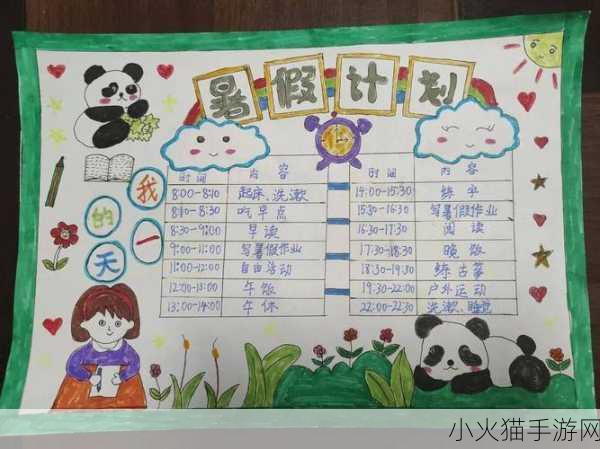 暑假计划
我的一天
时间 内容
8:00-8:10 起床、洗漱
8:10-8:30 吃早点
8:30-9:00 早读
9:00-11:00 写暑假作业
11:00-12:00 自由活动
12:00-13:00 午饭
13:00-14:00 午休
时间 内容
14:00-15:30 练字
15:30-16:30 写暑假作业
16:30-17:30 阅读
17:30-18:30 晚饭
18:30-19:30 练古筝
19:30-22:00 户外运动
22:00-22:30 洗漱、睡觉
小火猫手游网